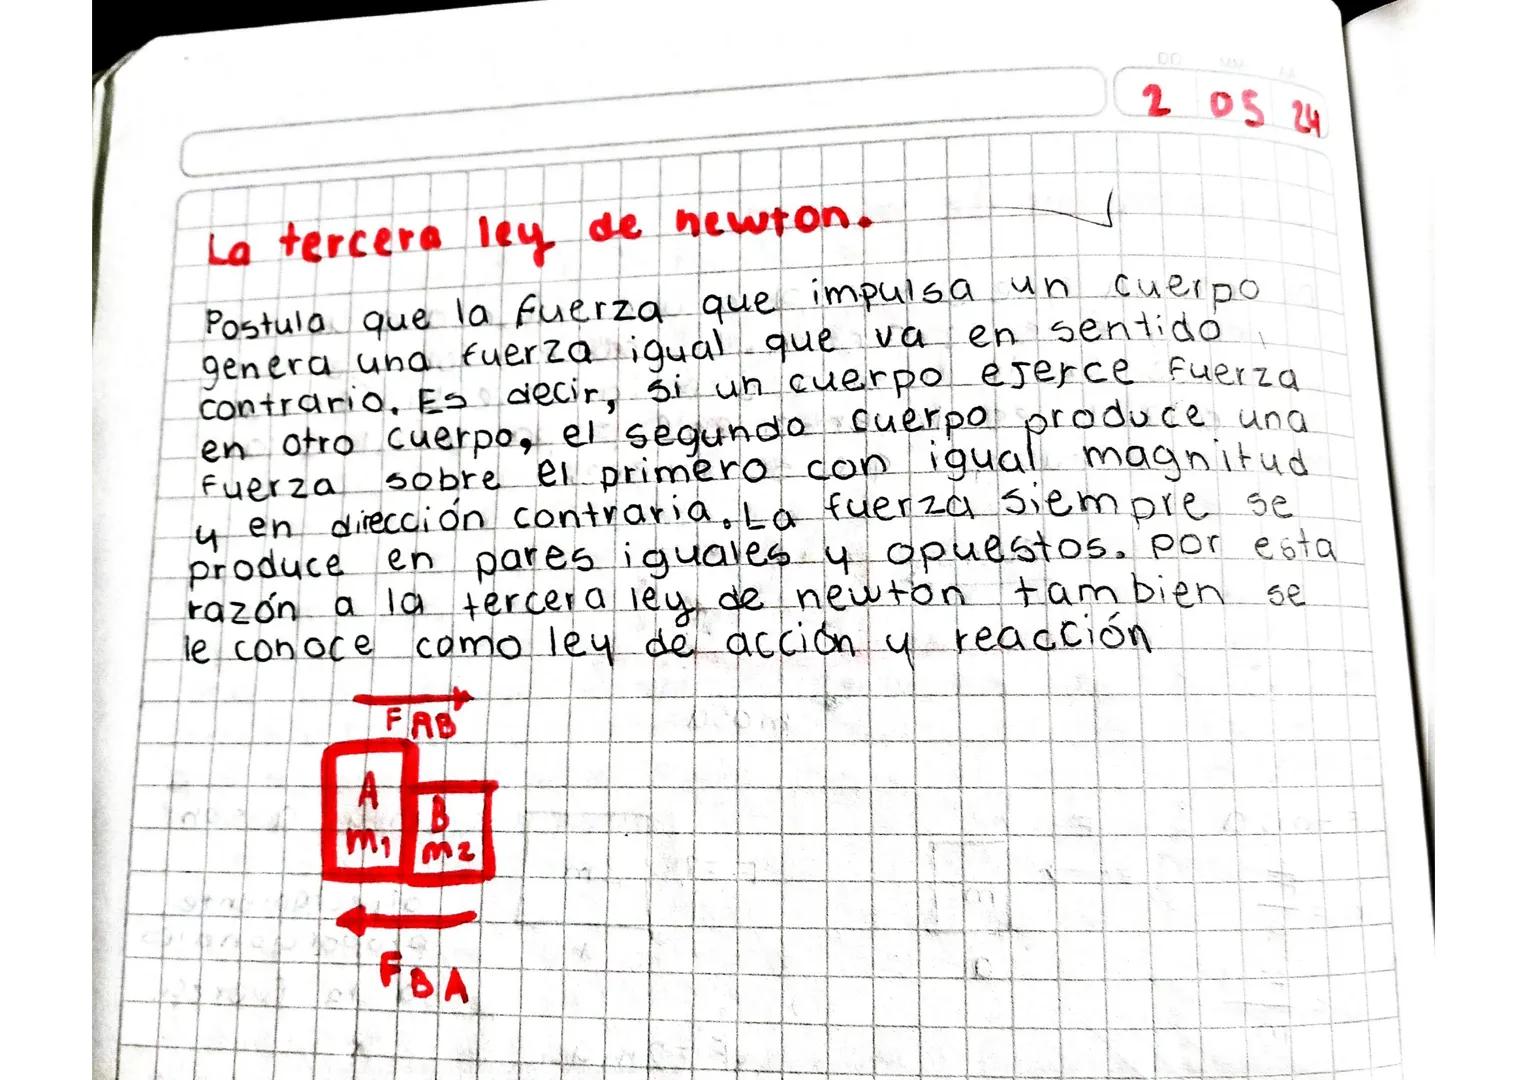 DD MM AA
2 05 24
La tercera ley de newton.
Postula que la fuerza que impulsa un cuerpo
genera una fuerza igual que va en sentido
contrario. Es decir, si un cuerpo ejerce fuerza
en otro cuerpo, el segundo cuerpo produce una
fuerza sobre el primero con igual magnitud
y en dirección contraria. La fuerza siempre se
produce en pares iguales y opuestos. por esta
razón a la tercera ley de newton tambien se
le conoce como ley de acción y reacción
F AB
A
B
m1
m2
F BA